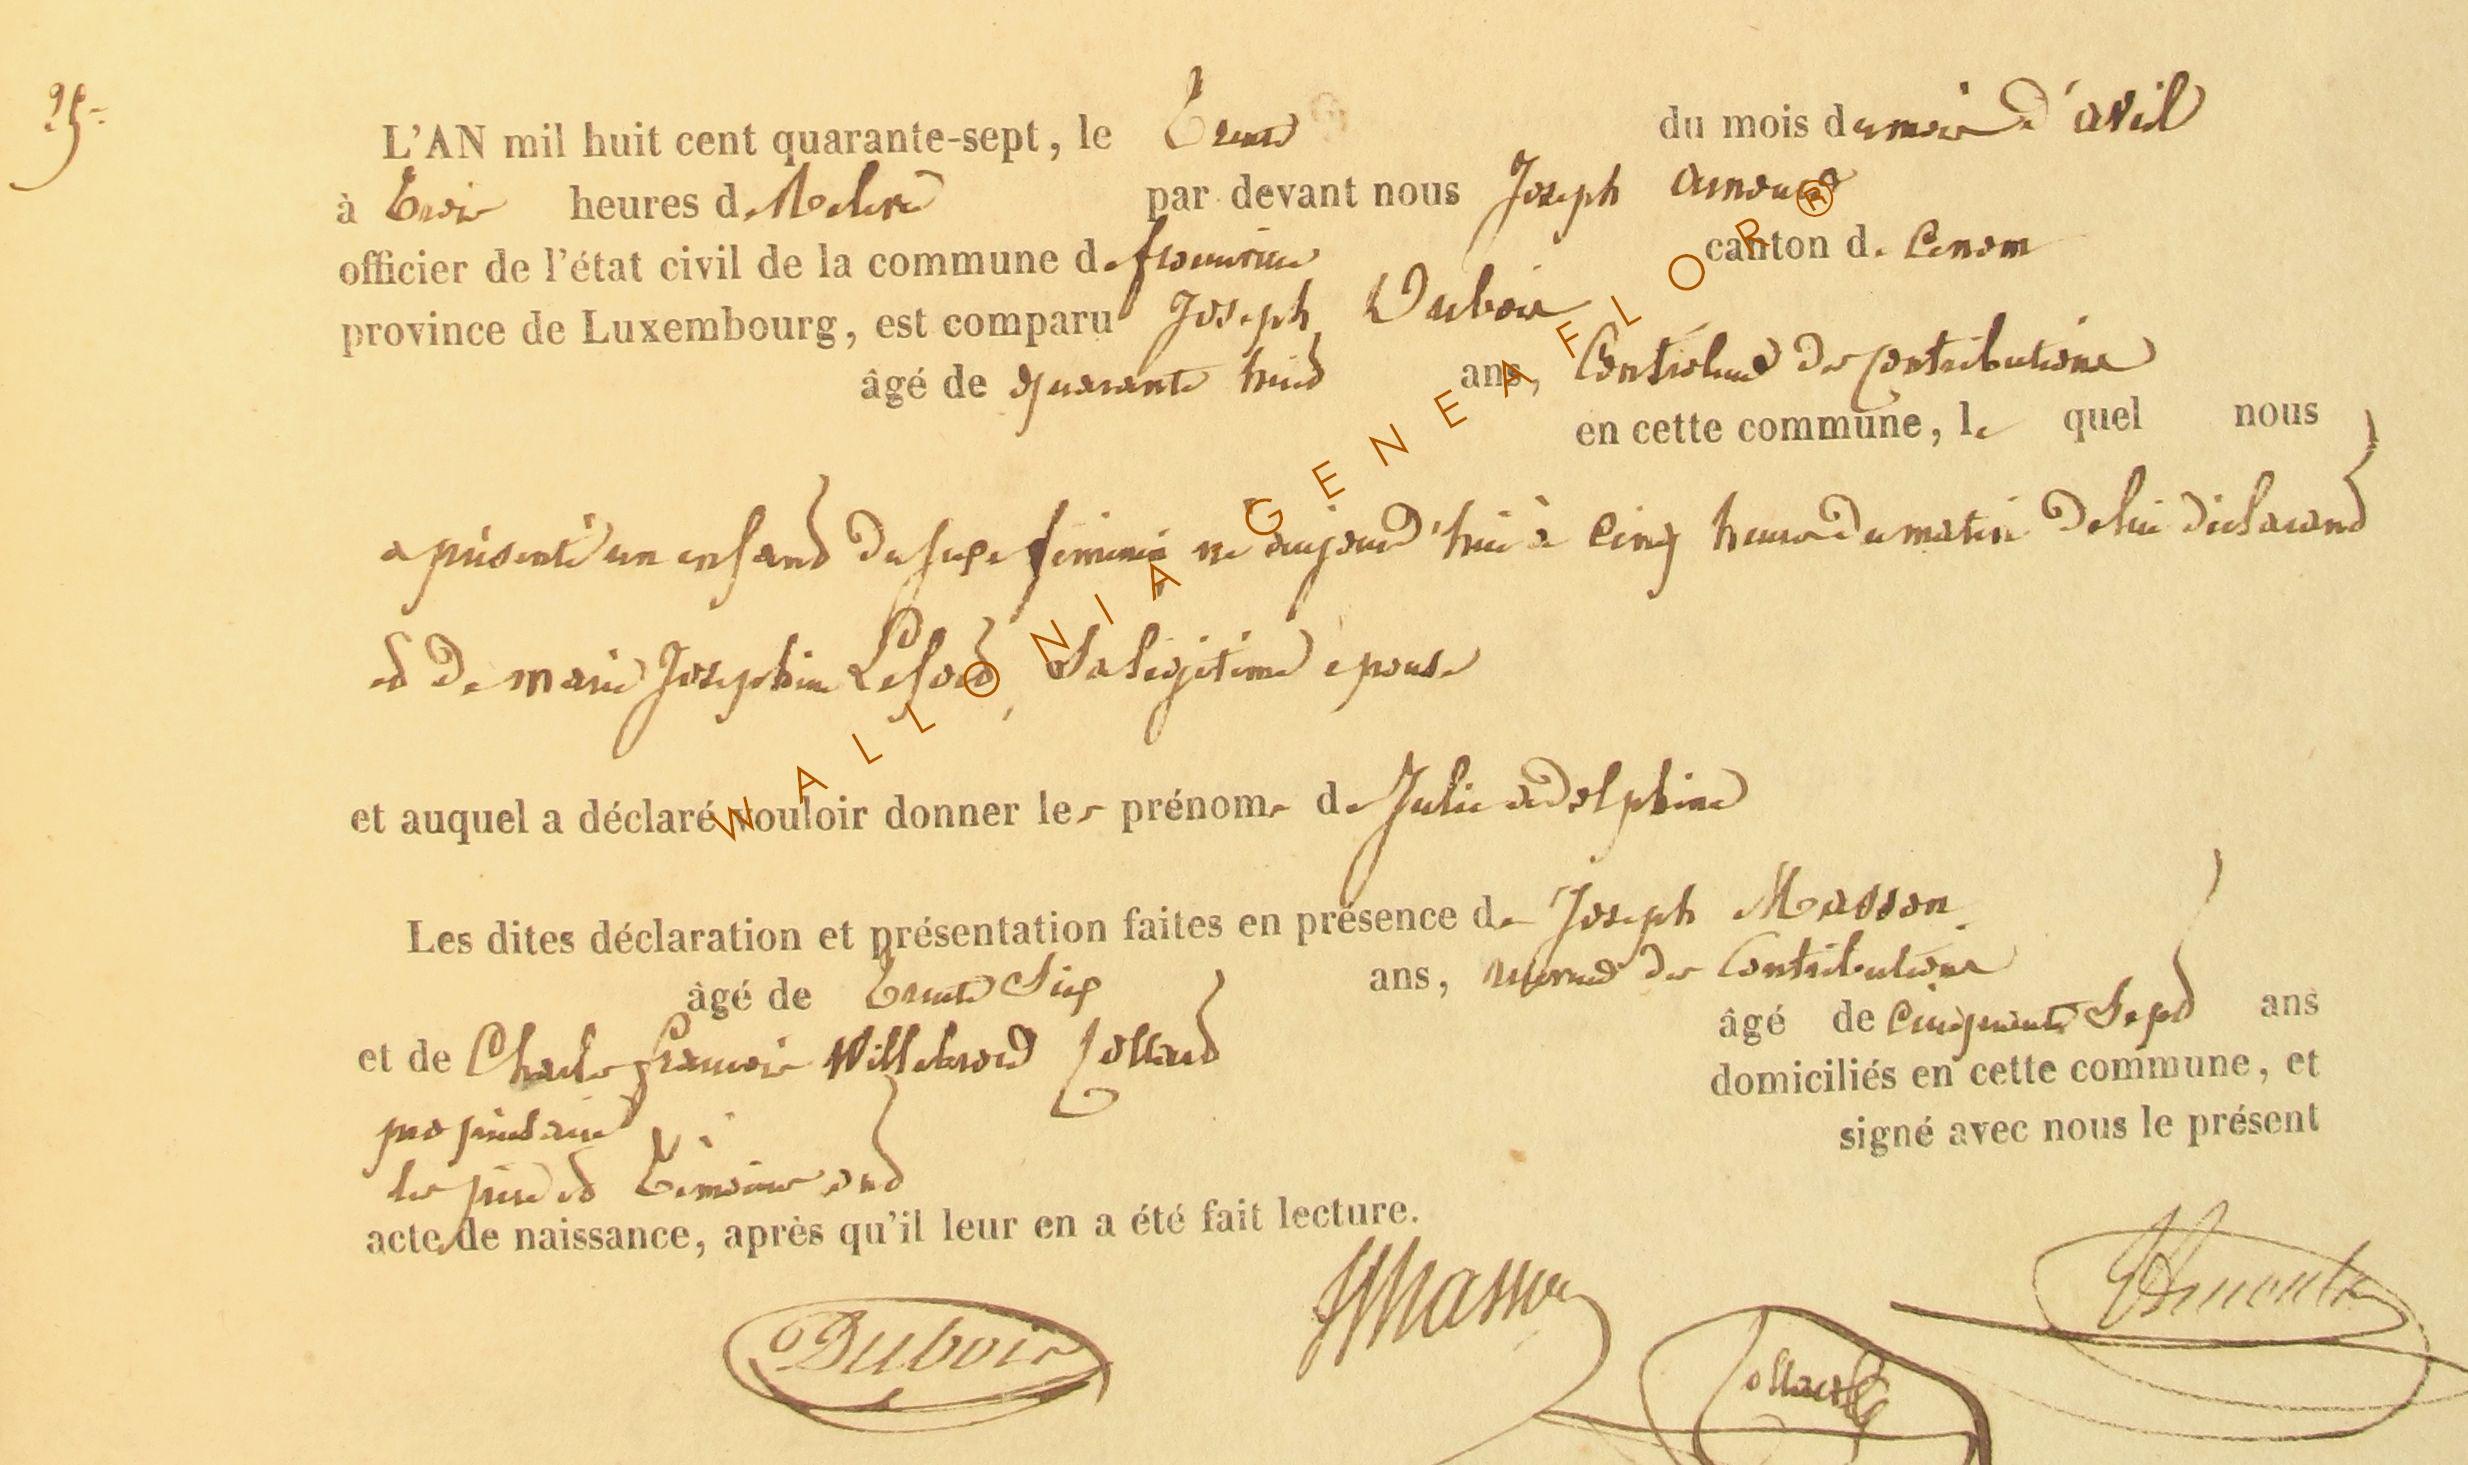 25
L'AN mil huit cent quarante-sept, le Trente du mois du mois d'avril
à Trois heures de Relevé par devant nous Joseph Arnould
officier de l'état civil de la commune de canton de
province de Luxembourg, est comparu Joseph Dubois
âgé de quarante huit ans, Controleur des contributions
en cette commune, le quel nous
a présenté un enfant du sexe feminin né aujourd'hui à cinq heures du matin de lui déclarant
et de marie Josephine sa legitime epouse
et auquel a déclaré vouloir donner les prénoms de Julie adolphine
Les dites déclaration et présentation faites en présence de Joseph Masson
âgé de Trente Six ans, receveur des Contributions
et de Charles francois Willebrord Collard âgé de cinquante Sept ans
propriétaire domiciliés en cette commune, et
les père et Témoins ont signé avec nous le présent
acte de naissance, après qu'il leur en a été fait lecture.
Dubois
Masson
Collard
WALLONIA GENEAFLOR®